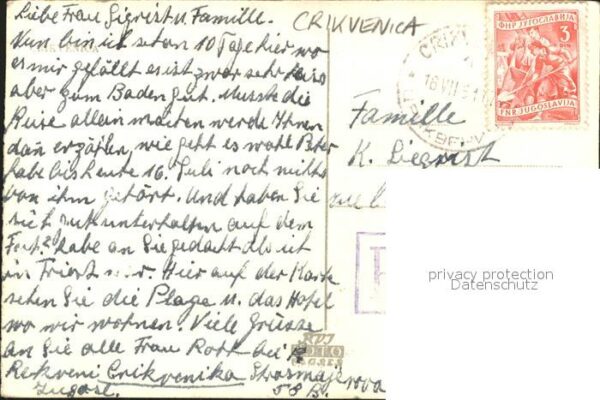 Liebe Frau Sigrist u. Familie.
CRIKVENICA
Nun bin ich schon 10 Tage hier wo
es mir gefällt es ist zwar sehr heiss
aber zum Baden gut. Musste die
Reise allein machen werde Ihnen
dan erzählen, wie geht es wohl Peter
habe bis heute 16. Juli noch nichts
von ihm gehört. Und haben Sie
sich gut unterhalten auf dem
Fest? habe an Sie gedacht als ich
in Triest war. Hier auf der Karte
sehen Sie die Plage u. das Hotel
wo wir wohnen. Viele Grüsse
an Sie alle Frau Roth bei
Crikvenika Strosmajerova
Jugosl. 58 B.
ФНР ЈУГОСЛАВИЈА
3
DIN
FNR JUGOSLAVIJA
Familie
K. Siegrist
FOTO
privacy protection
Datenschutz